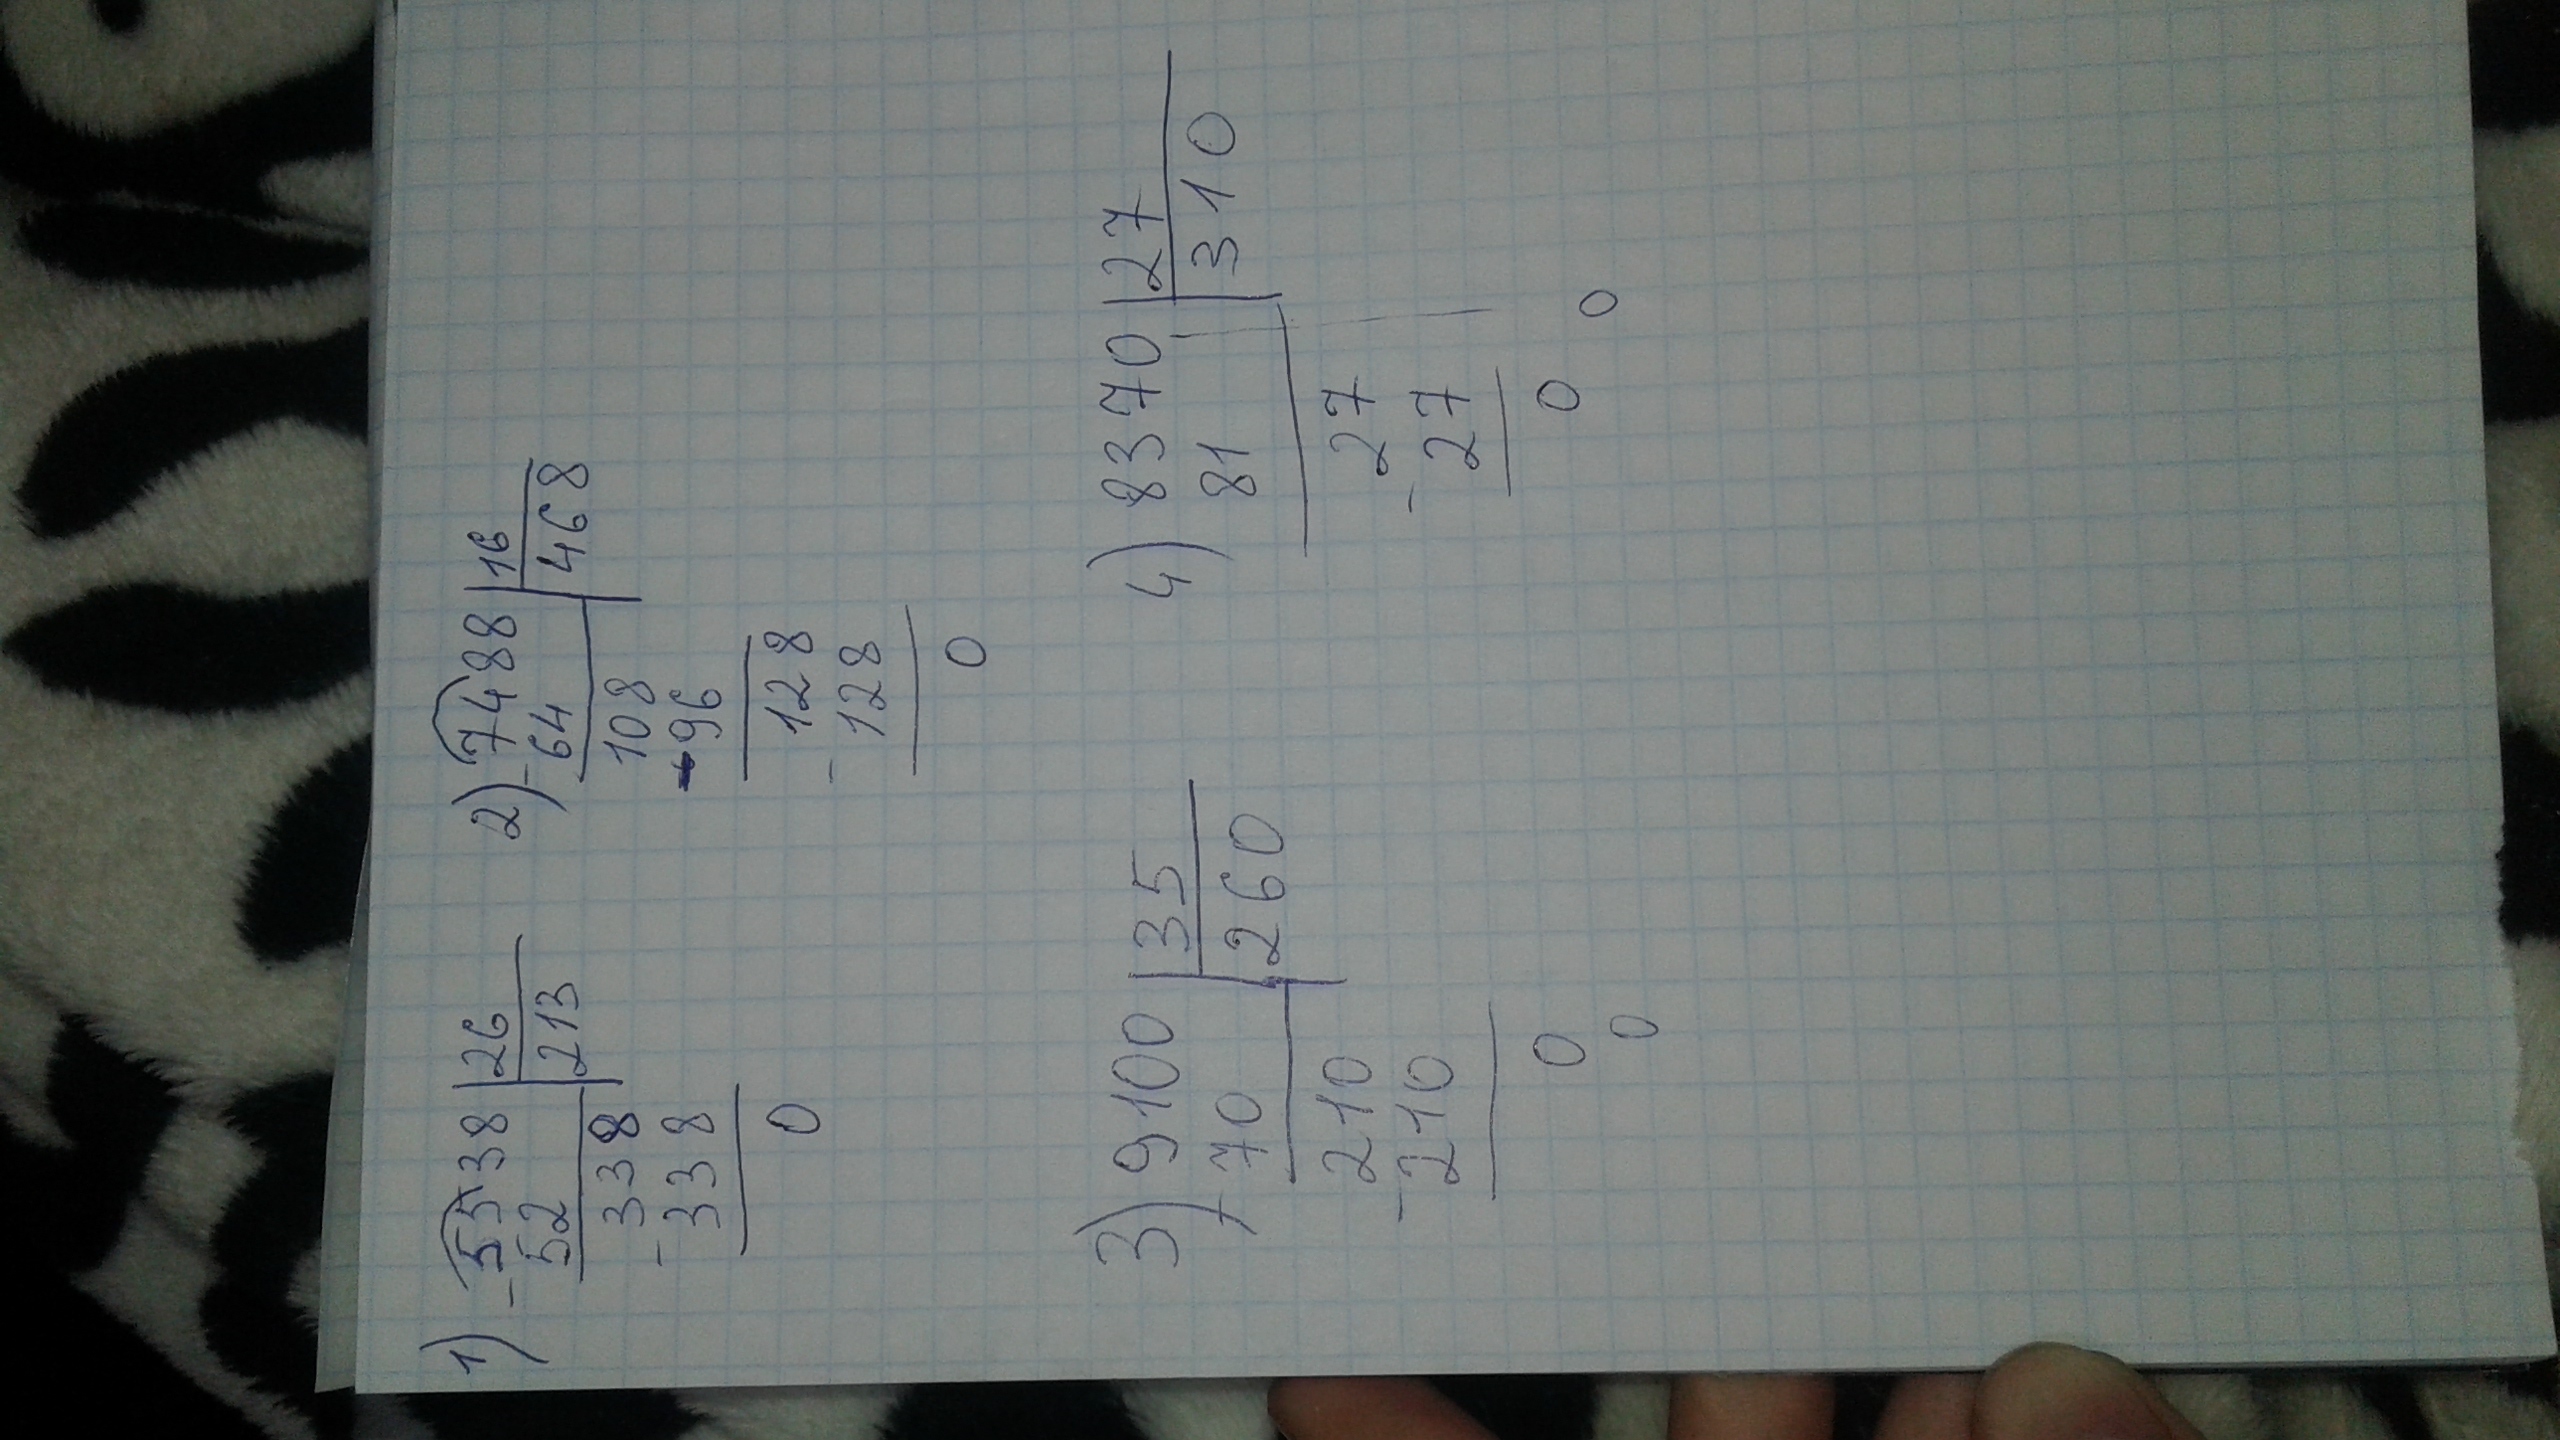 1) -5538 |26
52 |213
338
-338
0
2) -7488 |16
64 |468
108
-96
128
-128
0
3) 9100 |35
-70 |260
210
-210
0
0
4) 8370 |27
81 |310
27
-27
0
0